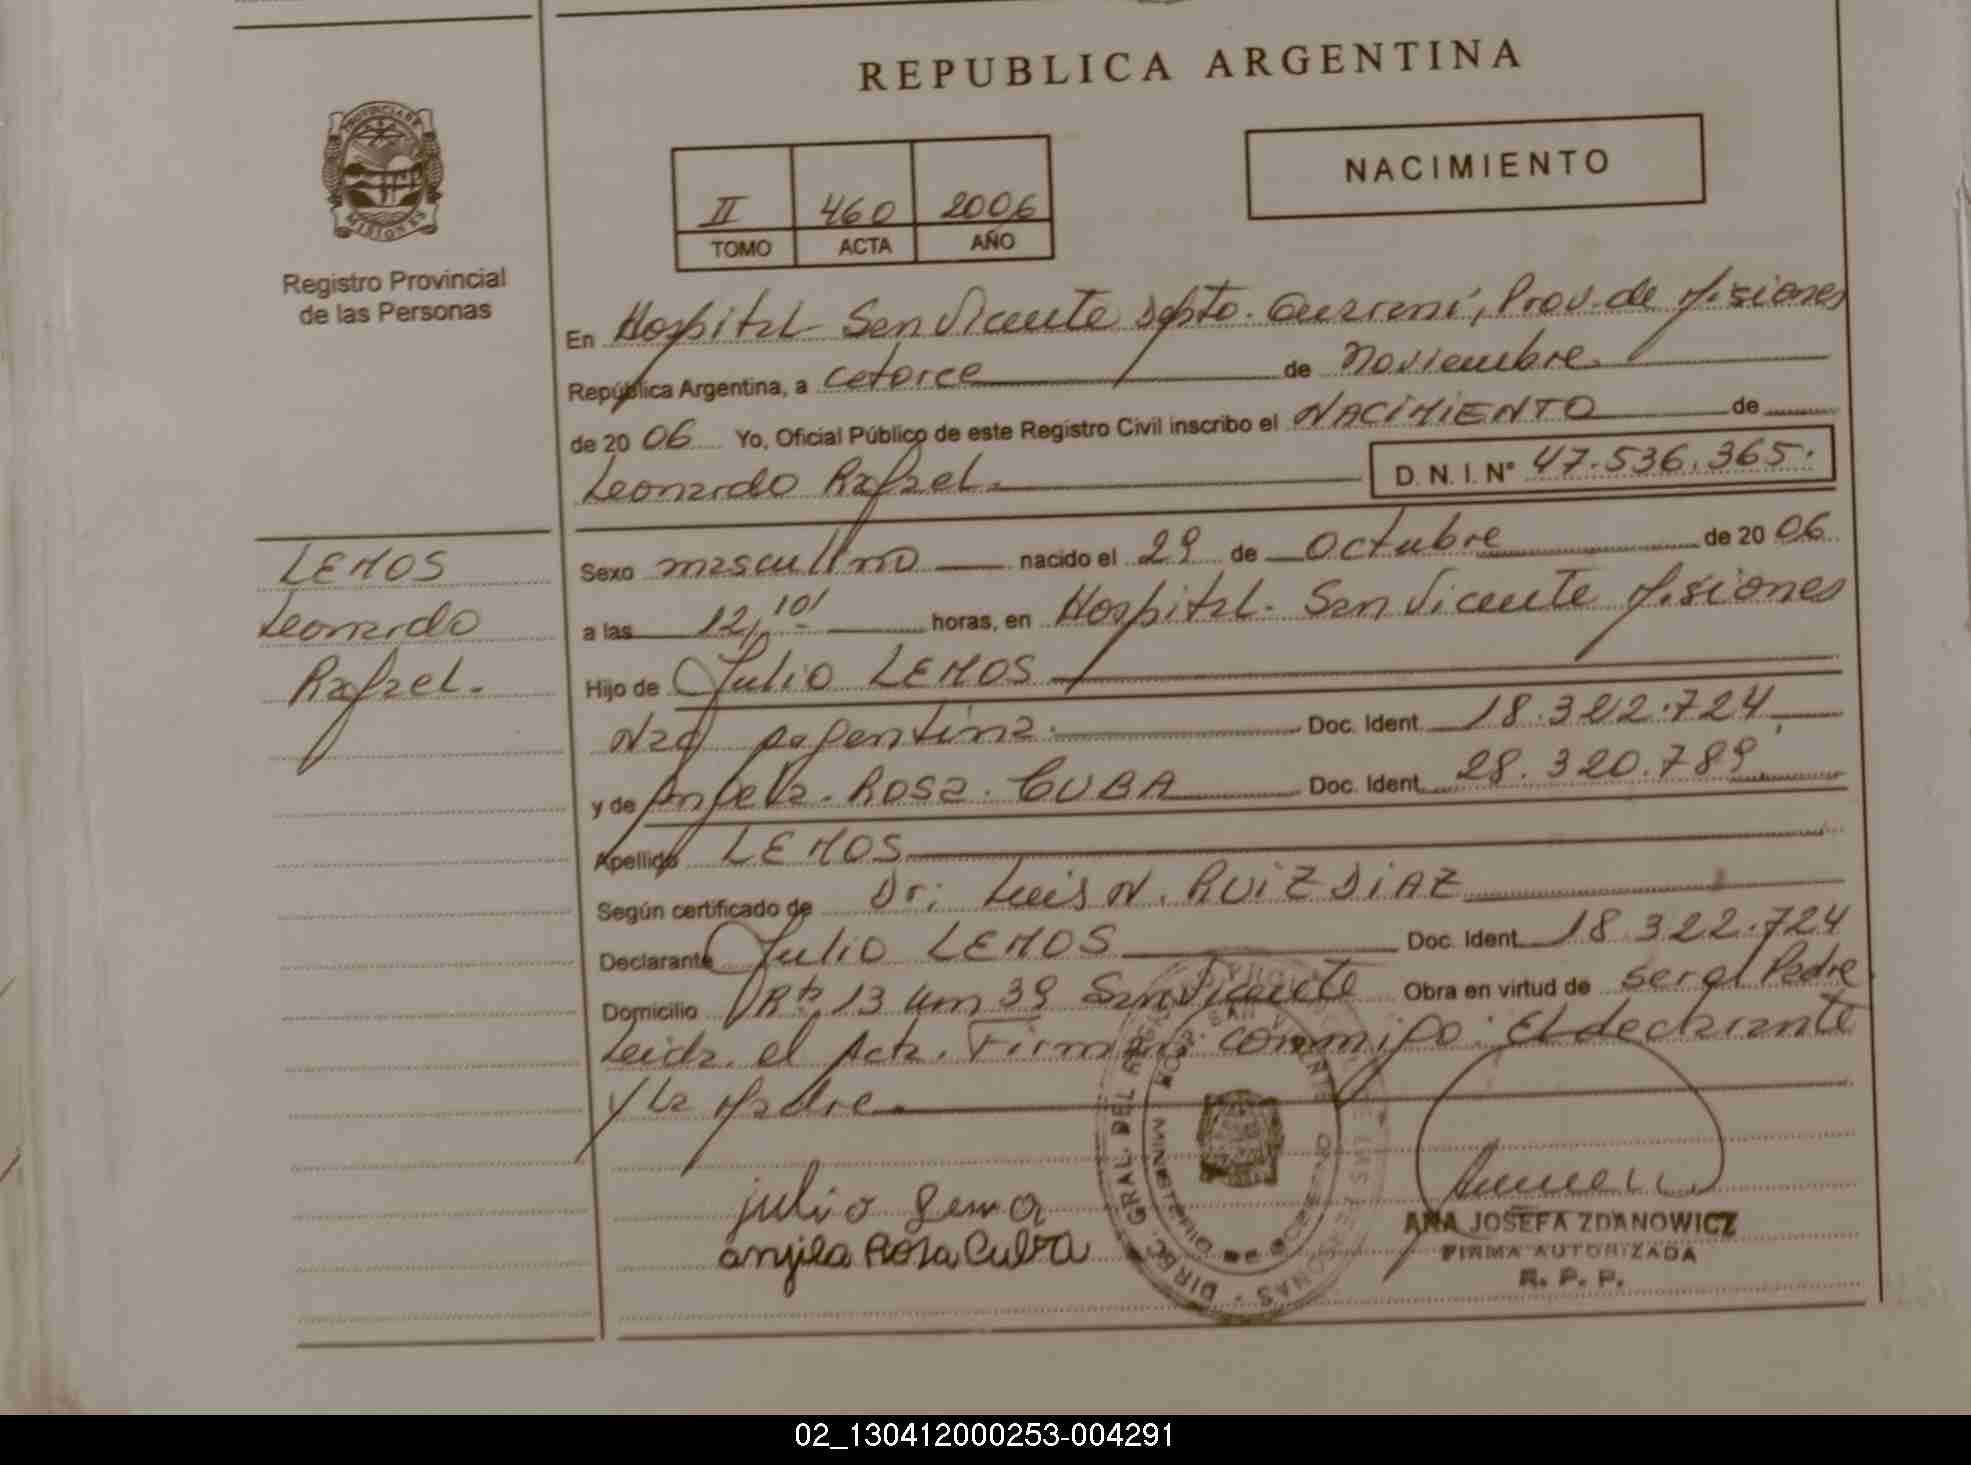 REPUBLICA ARGENTINA
PROVINCIA DE
MISIONES
Registro Provincial
de las Personas
II 460 2006
TOMO ACTA AÑO
NACIMIENTO
En Hospital San Vicente Dpto. Guarani, Prov. de Misiones
República Argentina, a catorce de noviembre
de 2006 Yo, Oficial Público de este Registro Civil inscribo el NACIMIENTO de
Leonardo Rafael.
D. N. I. Nº 47.536.365.
LEMOS
Leonardo
Rafael.
Sexo masculino nacido el 29 de Octubre de 2006
a las 12,10' horas, en Hospital. San Vicente Misiones
Hijo de Julio LEMOS
Nac argentina. Doc. Ident. 18.322.724,
y de Angela. Rosa. CUBA Doc. Ident. 28.320.789
Apellido LEMOS
Según certificado de Dr: Luis N. RUIZ DIAZ
Declarante Julio LEMOS Doc. Ident. 18.322.724
Domicilio Rta. 13 Km 39 San Vicente Obra en virtud de ser el Padre
Leida el Acta. Firman conmigo: El declarante
y la Madre.
julio Lemo
angela Rosa Cuba
DIREC. GRAL. DEL
ANA JOSEFA ZDANOWICZ
FIRMA AUTORIZADA
R. P. P.
02_130412000253-004291